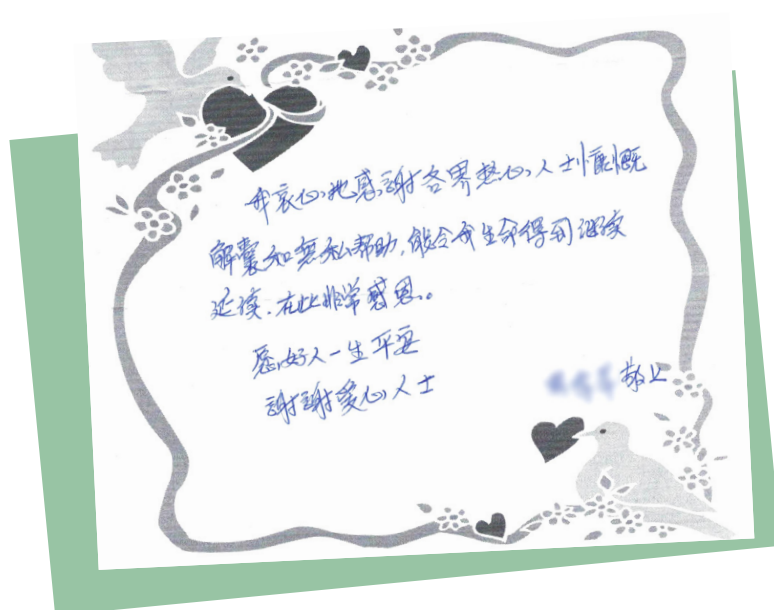 我衷心地感謝各界热心人士慷慨
解囊和無私帮助,能令我生命得到继续
延续.在此非常感恩。
愿好人一生平安
謝謝爱心人士
敬上